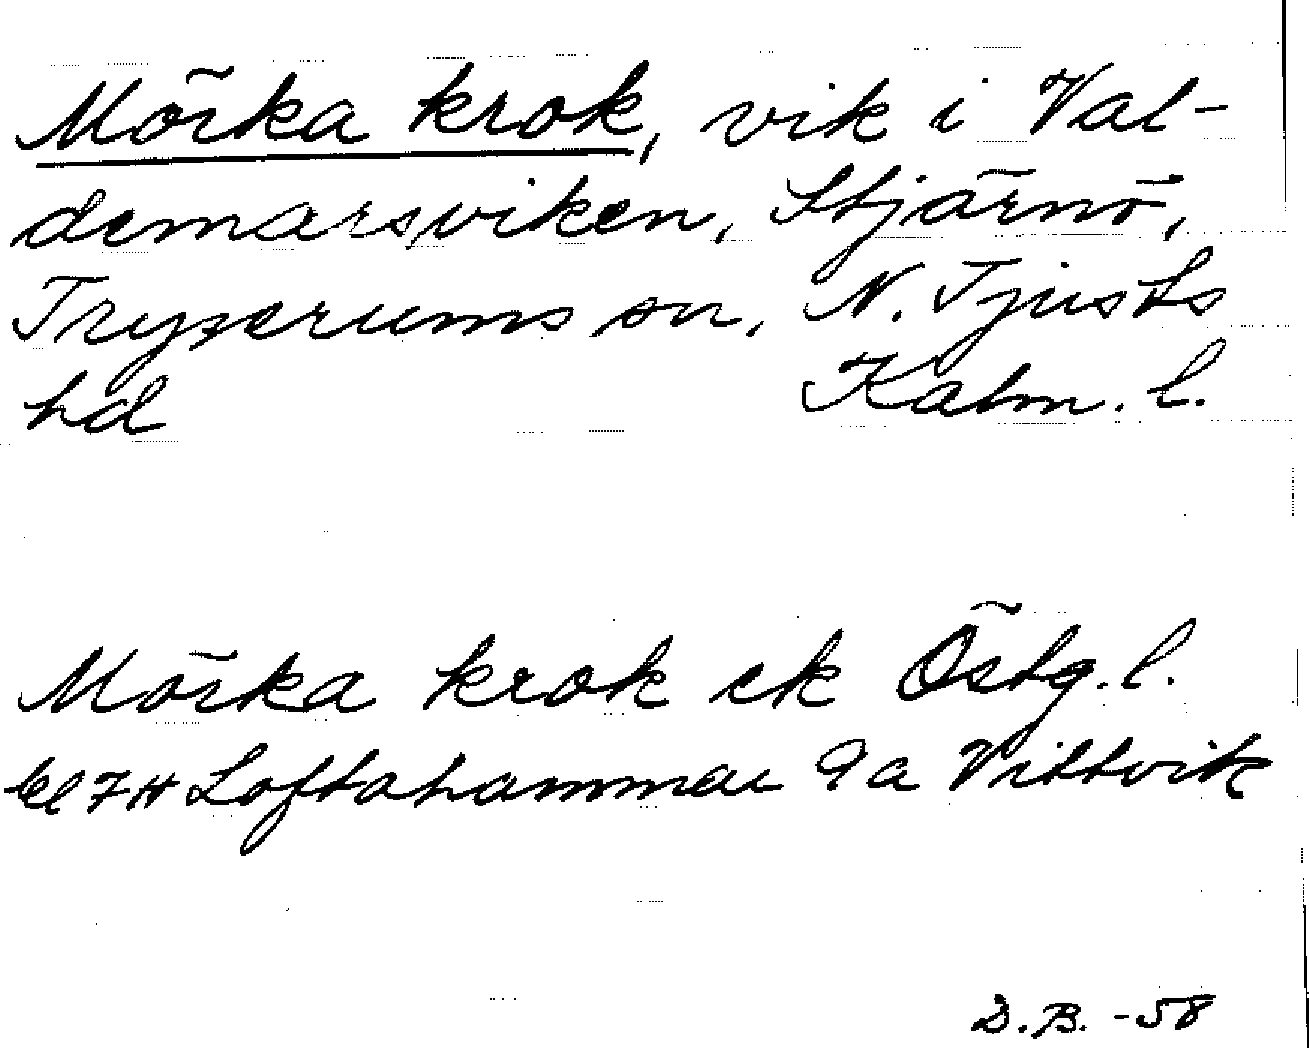 Mörka krok, vik i Val-
demarsviken, Stjärnö,
Tryserums sn, N. Tjusts
hd Kalm. l.
Mörka krok ek Östg. l.
bl 7H Loftahammar 9a Vittvik
D.B. -58